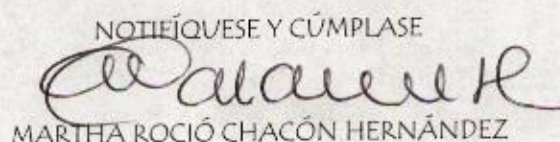 NOTIFÍQUESE Y CÚMPLASE
MARTHA ROCIÓ CHACÓN HERNÁNDEZ